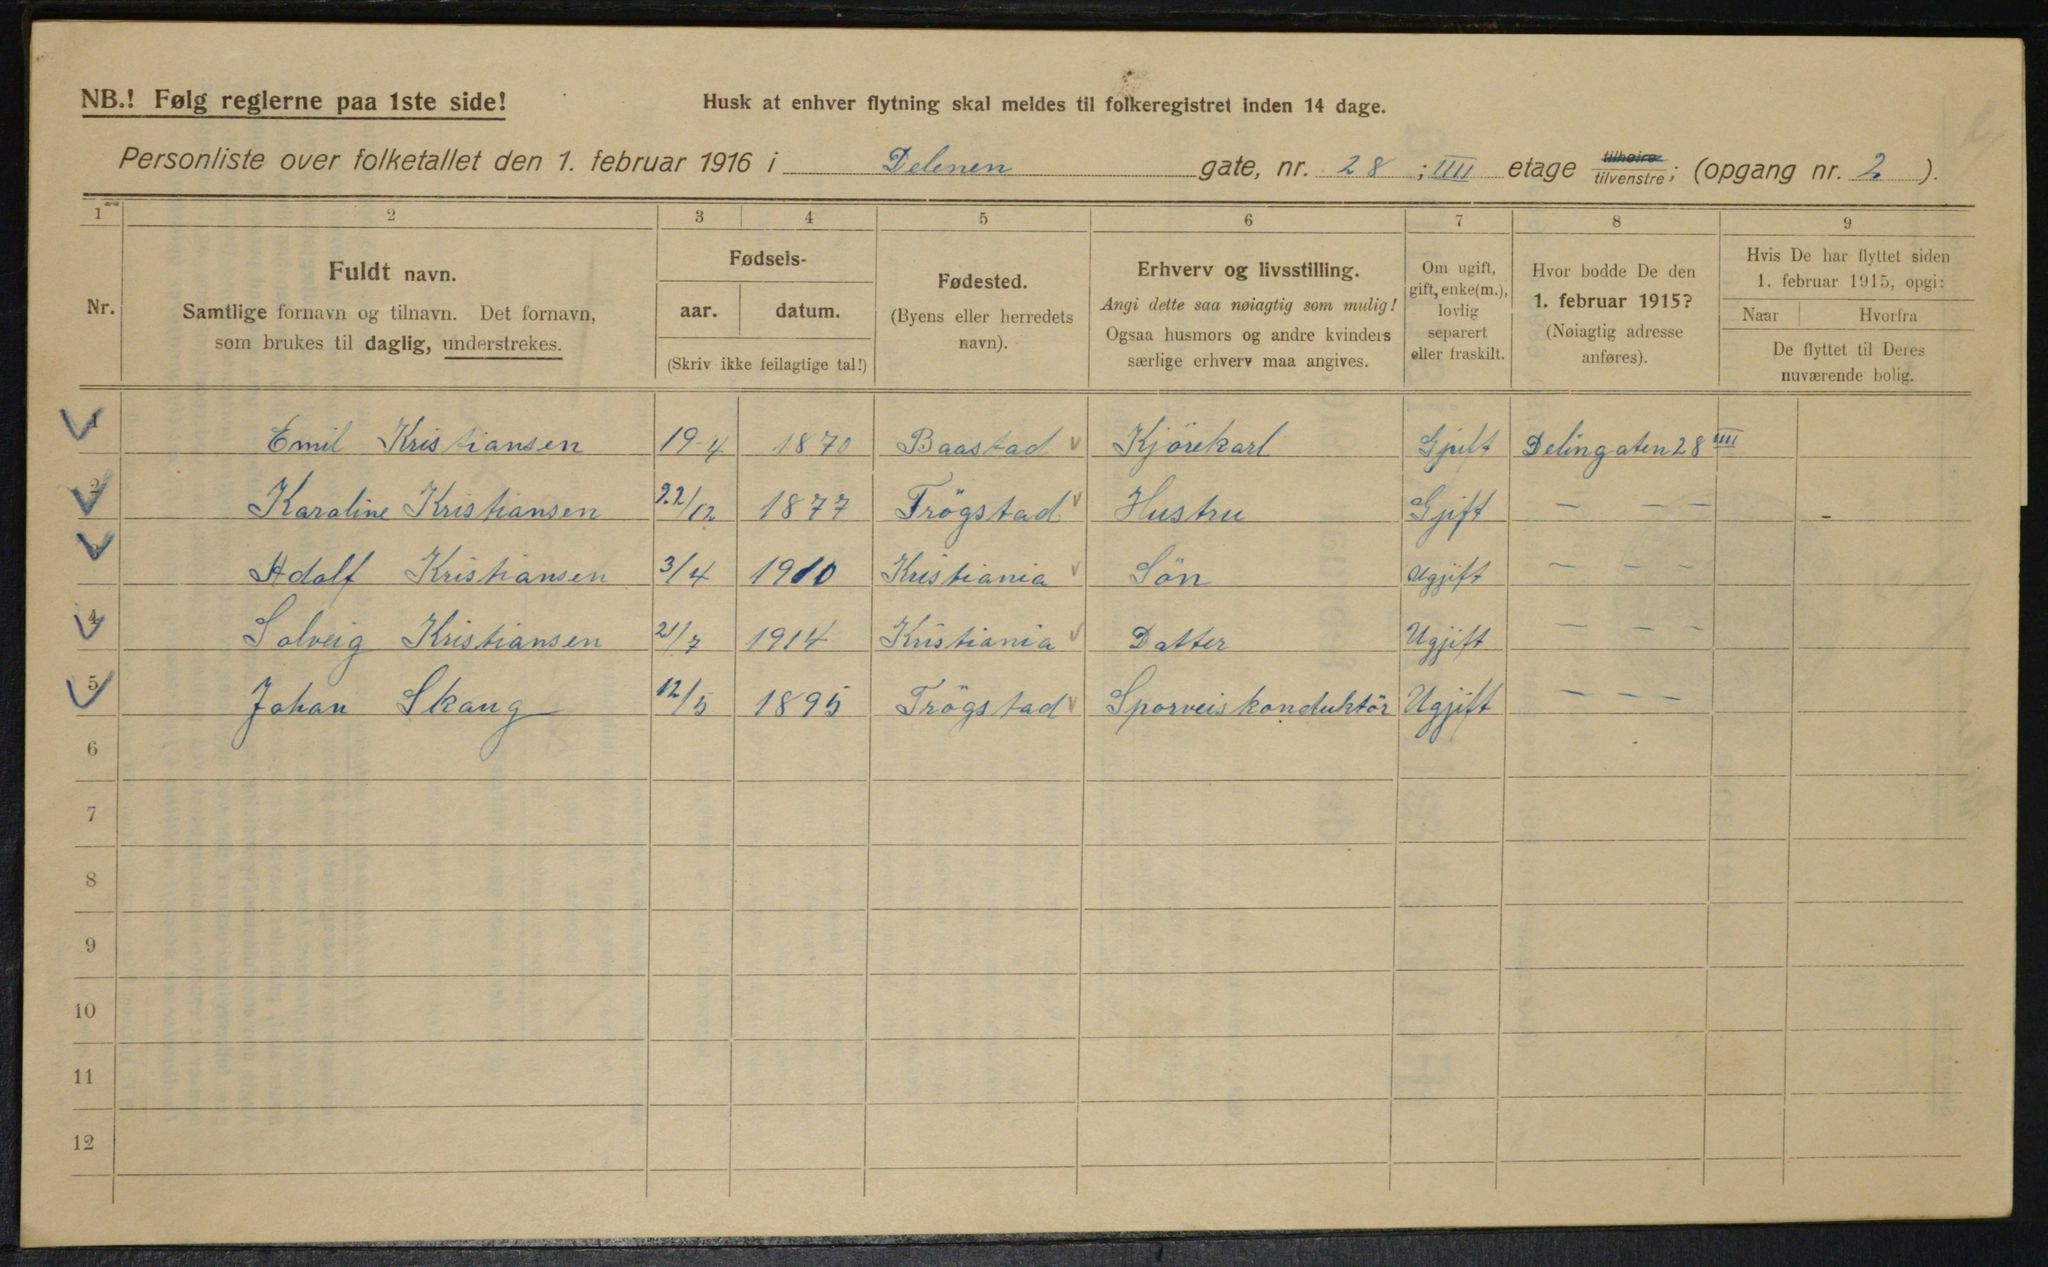 NB.! Følg reglerne paa 1ste side!
Husk at enhver flytning skal meldes til folkeregistret inden 14 dage.
Personliste over folketallet den 1. februar 1916 i Delenen gate, nr. 28 ; IIII etage tilhøire tilvenstre; (opgang nr. 2 ).
1 2 3 4 5 6 7 8 9
Nr.
Fuldt navn.
Samtlige fornavn og tilnavn. Det fornavn,
som brukes til daglig, understrekes.
Fødsels-
aar. datum.
(Skriv ikke feilagtige tal!)
Fødested.
(Byens eller herredets
navn).
Erhverv og livsstilling.
Angi dette saa nøiagtig som mulig!
Ogsaa husmors og andre kvinders
særlige erhverv maa angives.
Om ugift,
gift, enke(m.),
lovlig
separert
eller fraskilt.
Hvor bodde De den
1. februar 1915?
(Nøiagtig adresse
anføres).
Hvis De har flyttet siden
1. februar 1915, opgi:
Naar Hvorfra
De flyttet til Deres
nuværende bolig.
1 Emil Kristiansen 19-4 1870 Baastad Kjörekarl Gjift Delingaten 28 IIII
2 Karaline Kristiansen 22/12 1877 Trögstad Hustru Gjift — — —
3 Adolf Kristiansen 3/4 1910 Kristiania Sön Ugjift — — —
4 Solveig Kristiansen 21/7 1914 Kristiania Datter Ugjift — — —
5 Johan Skaug 12/5 1895 Trögstad Sporveiskonduktör Ugjift — — —
6
7
8
9
10
11
12